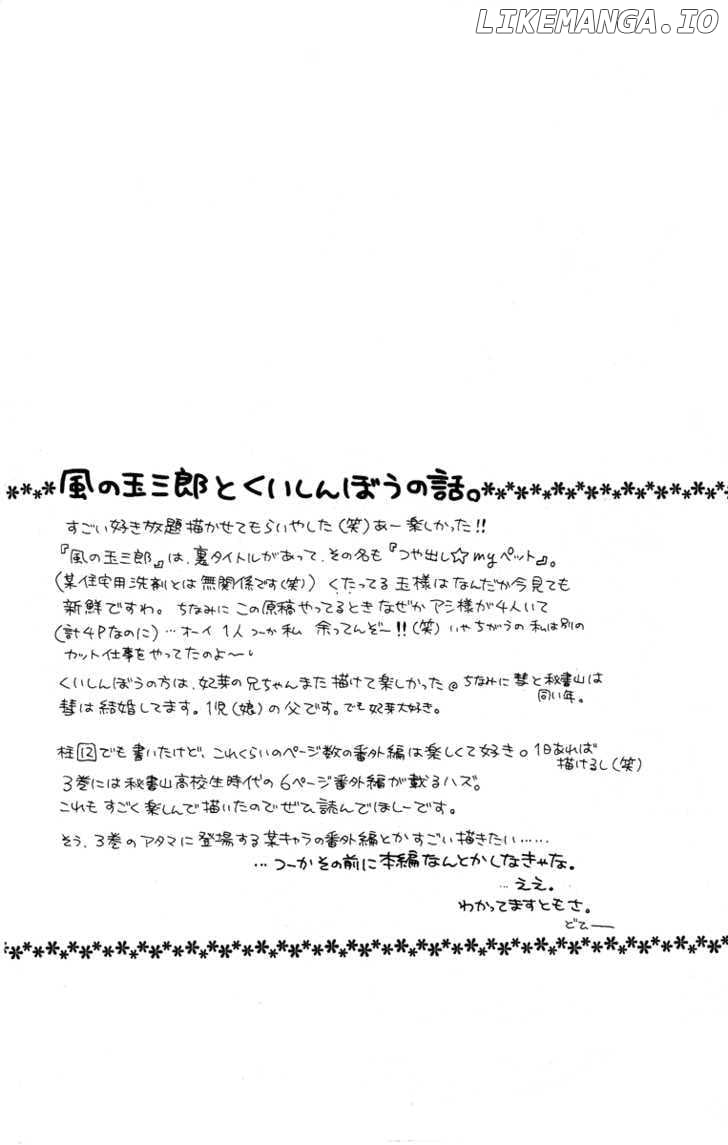 LIKEMANGA.IO
風の玉三郎とくいしんぼうの話。
すごい好き放題描かせてもらいやした(笑)あー楽しかった!!
『風の玉三郎』は、裏タイトルがあって、その名も『つや出し☆myペット』。
(某住宅用洗剤とは無関係です(笑)) くたってる玉様はなんだか今見ても
新鮮ですわ。ちなみにこの原稿やってるときなぜかアシ様が4人いて
(計4Pなのに)…オーイ1人つーか私 余ってんぞー!!(笑)いやちがうの私は別の
カット仕事をやってたのよ〜。
くいしんぼうの方は、妃芽の兄ちゃんまた描けて楽しかった@ちなみに彗と秘書山は
同い年。
彗は結婚してます。1児(娘)の父です。でも妃芽大好き。
柱12でも書いたけど、これくらいのページ数の番外編は楽しくて好き。1日あれば
描けるし(笑)
3巻には秘書山高校生時代の6ページ番外編が載るハズ。
これもすごく楽しんで描いたのでぜひ読んでほしーです。
そう、3巻のアタマに登場する某キャラの番外編とかすごい描きたい……
…つーかその前に本編なんとかしなきゃな。
…ええ。
わかってますともさ。